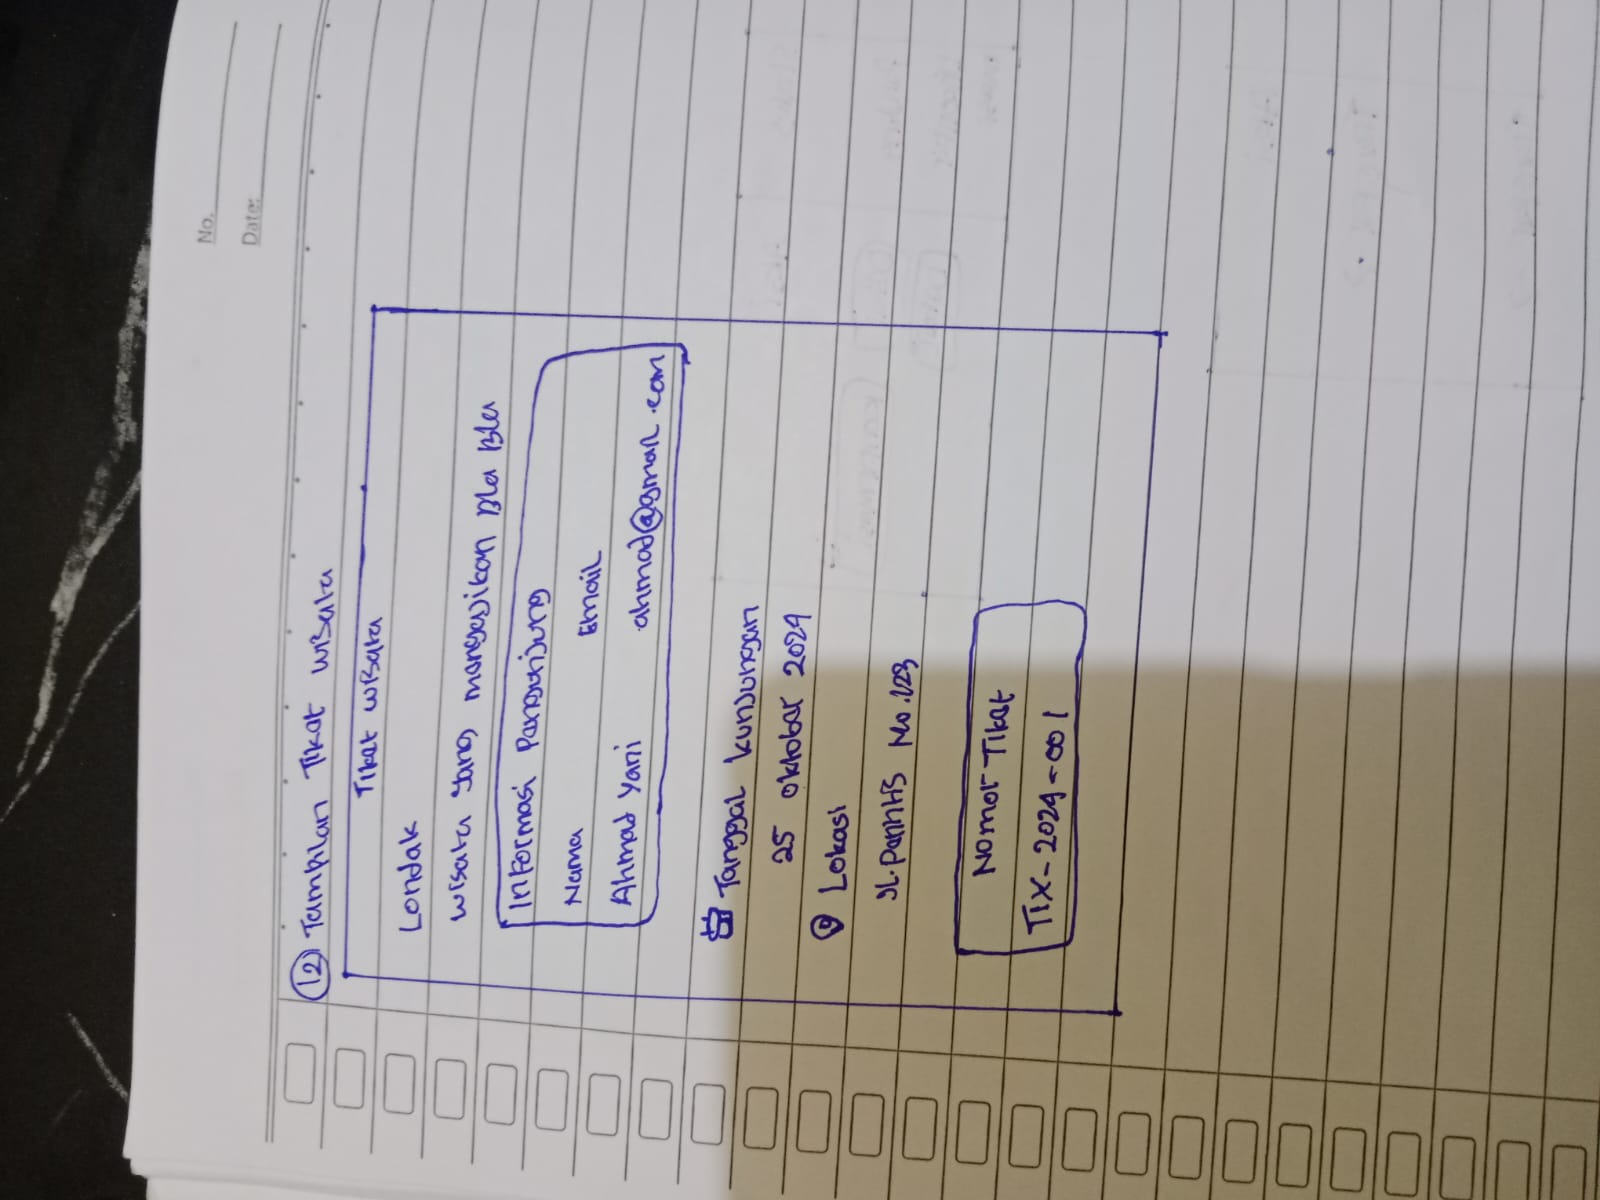 No.
Date:
12 Tampilan Tiket wisata
Tiket wisata
Londak
wisata yang mengajikan Bla Bla
Informasi Pengunjung
Nama Email
Ahmad Yani ahmad@gmail.com
Tanggal kunjungan
25 oktober 2024
Lokasi
Jl. No.123
Nomor Tiket
TIX-2024-001